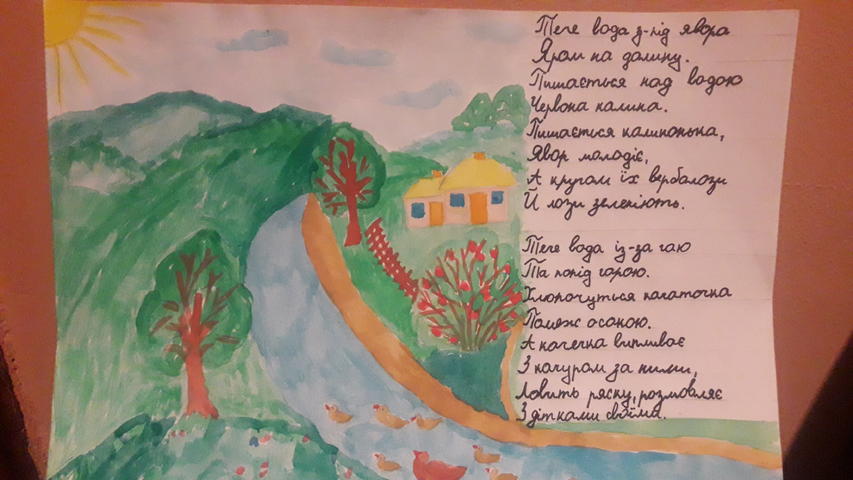 Тече вода з-під явора
Яром на долину.
Пишається над водою
Червона калина.
Пишається калинонька,
Явор молодіє,
А кругом їх верболози
Й лози зеленіють.
Тече вода із-за гаю
Та попід горою.
Хлюпочуться качаточка
Помеж осокою.
А качечка випливає
З качуром за ними,
Ловить ряску, розмовляє
З дітками своїми.